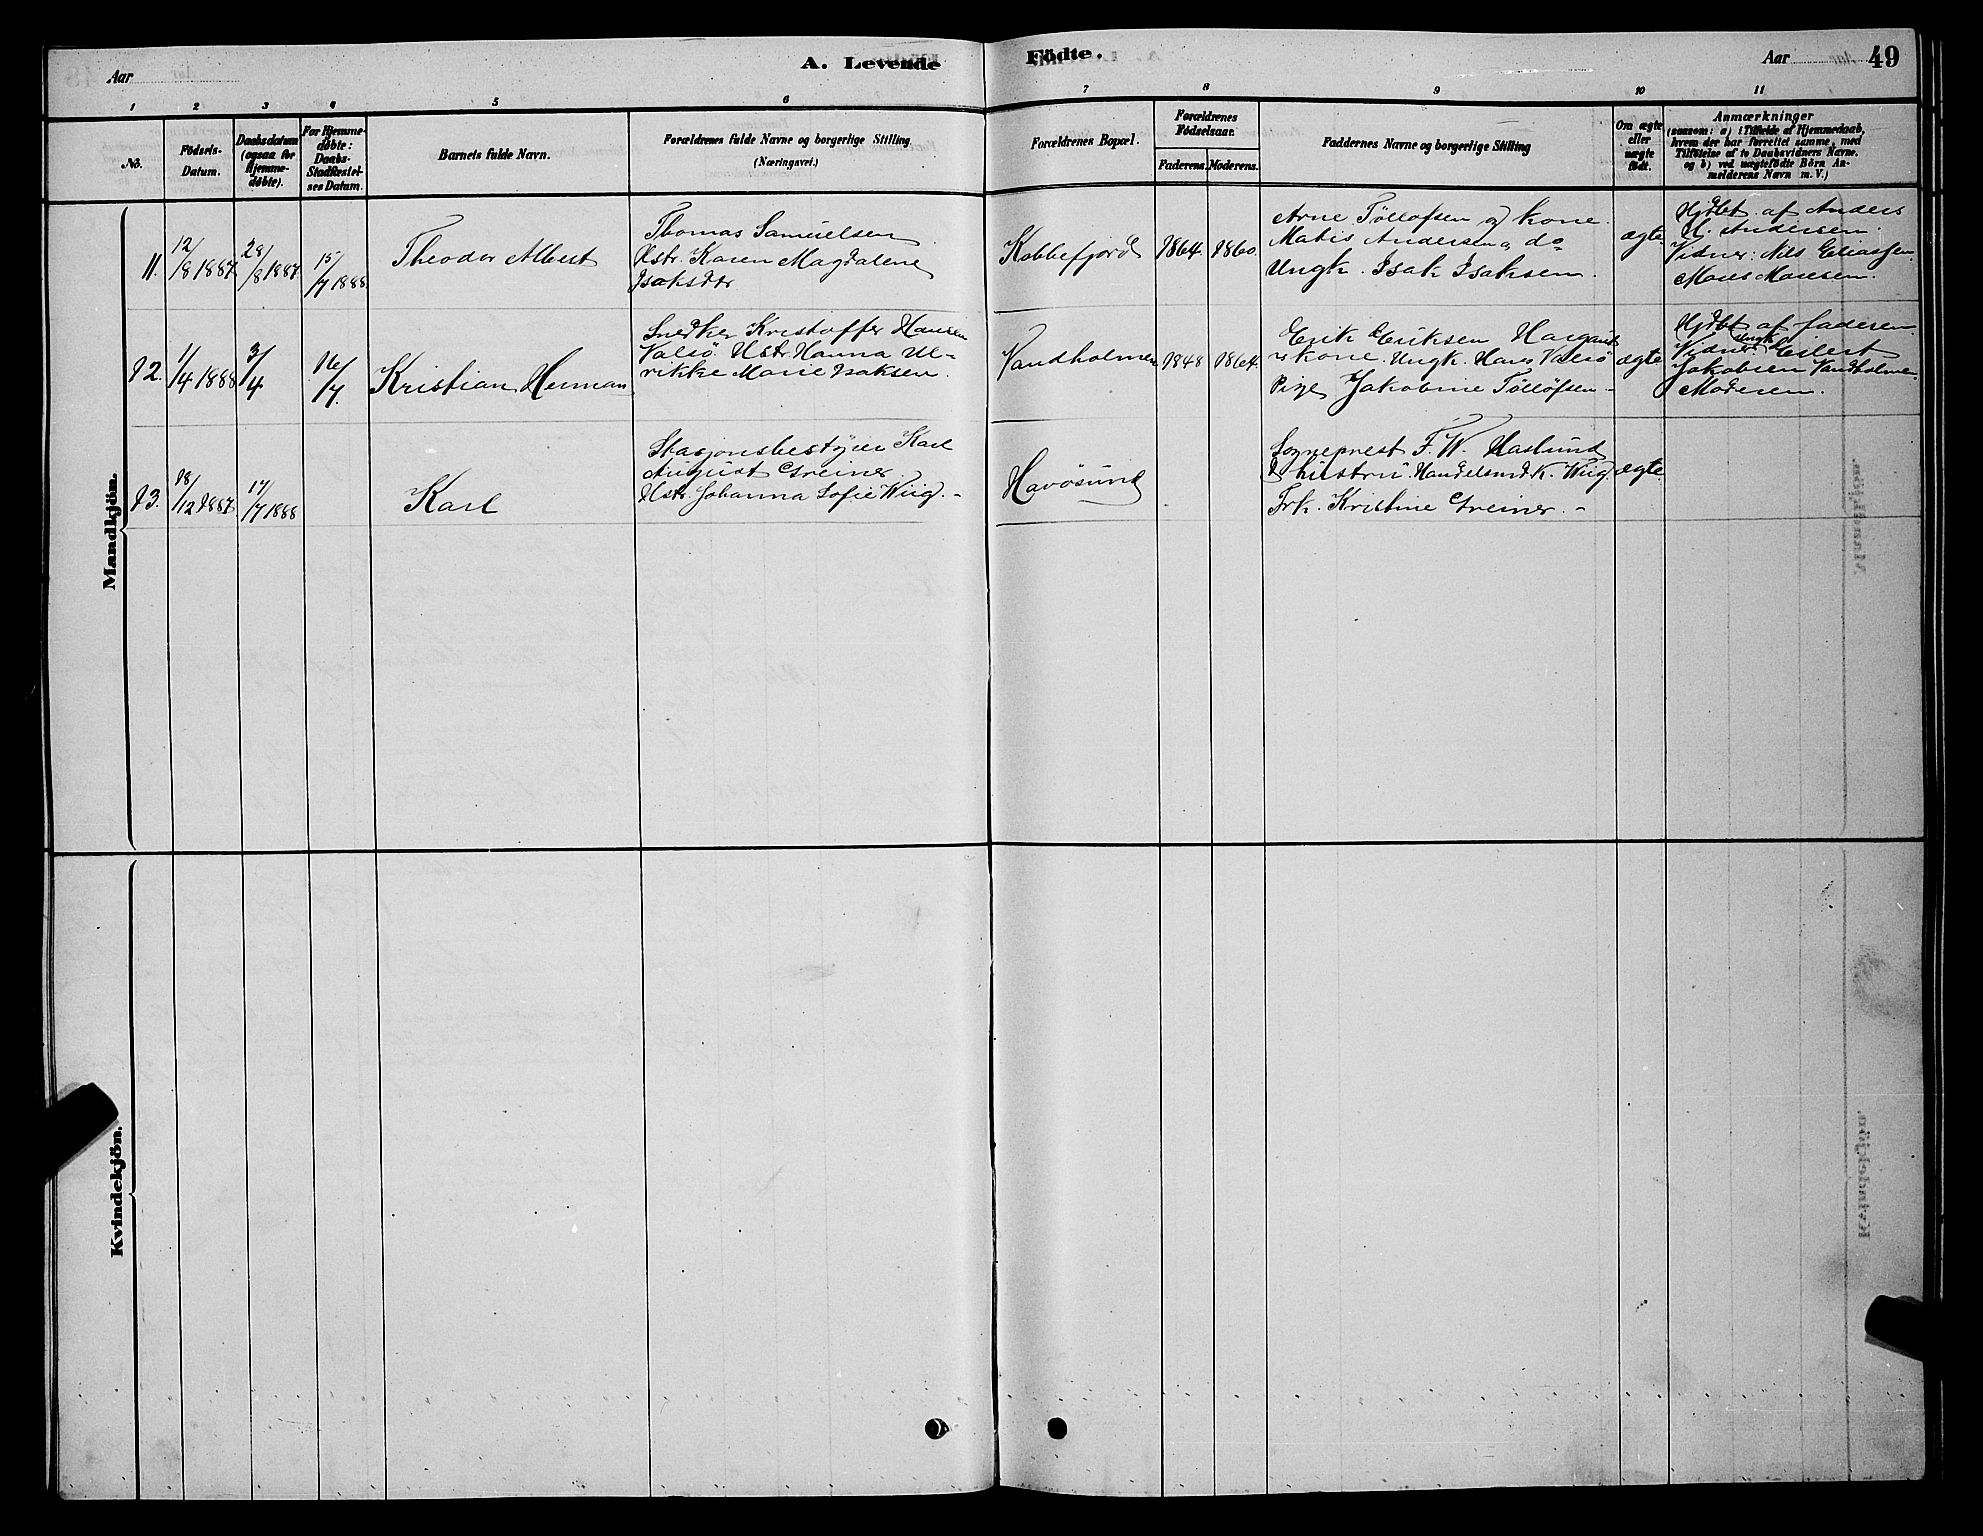 Aar
A. Levende
Födte.
Aar
49
1 2 3 4 5 6 7 8 9 10 11
No.
Födsels-
Datum.
Daabsdatum
(ogsaa for
Hjemme-
døbte).
For Hjemme-
døbte:
Daabs-
Stadfæstel-
ses Datum.
Barnets fulde Navn.
Forældrenes fulde Navne og borgerlige Stilling
(Næringsvei.)
Forældrenes Bopæl.
Forældrenes
Födselsaar.
Faderens. Moderens.
Faddernes Navne og borgerlige Stilling
Om ægte
eller
uægte
födt.
Anmærkninger
(saasom: a) i Tilfælde af Hjemmedaab,
hvem der har forrettet samme, med
Tilföielse af to Daabsvidners Navne,
og b) ved uægtefödte Börn An-
melderens Navn m. V.)
Mandkjön.
11.
12/8 1887.
28/8 1887.
15/7 1888.
Theodor Albert
Thomas Samuelsen
Hstr. Karen Magdalene
Isaksdtr
Kobbefjord
1864.
1860.
Arne Tölløfsen og Kone.
Matis Andersen og do
Ungk. Isak Isaksen.
ægte
Hjdbt. af Anders
A. Andersen.
Vidner: Nils Eliassen
Moses Mosesen.
12.
1/4 1888
3/4
16/7.
Kristian Herman
Snedker Kristoffer Hansen
Valsö. Hstr. Hanna Ul-
rikke Marie Isaksen.
Vandholmen
1848
1864.
Erik Eriksen
Kone. Ungk. Hans Valsö
Pige Jakobine Tölløfsen -
ægte
Hjdbt af faderen.
Vidner: Ungk Eilert
Jakobsen Vandholmen.
Moderen.
13.
18/12 1887.
17/7 1888
Karl
Stasjonsbestyrer Karl
August Greiner.
Hstr. Johanna Sofie Wiig. -
Havösund
Sogneprest F. W. Haslund
& hustru. Handelsmd. K. Wiig.
Frk. Kristine Greiner. -
ægte.
Kvindekjön.